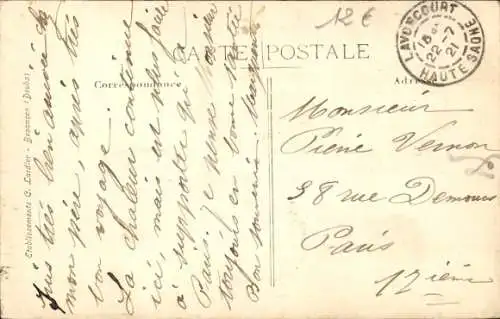 12 €
CARTE POSTALE
Correspondance
LAVONCOURT
18 H
22-7
21
HAUTE SAONE
Suis très bien arrivée chez
mon père, après très
bon voyage.
La chaleur continue
ici, mais est plus facile
à supporter qu'à
Paris. Je pense Monsieur
toujours en bonne santé
Bon souvenir
Monsieur
Pierre Vernon
58 rue Demours
Paris
17 ième
Etablissements C. Lardier - Besançon (Doubs)